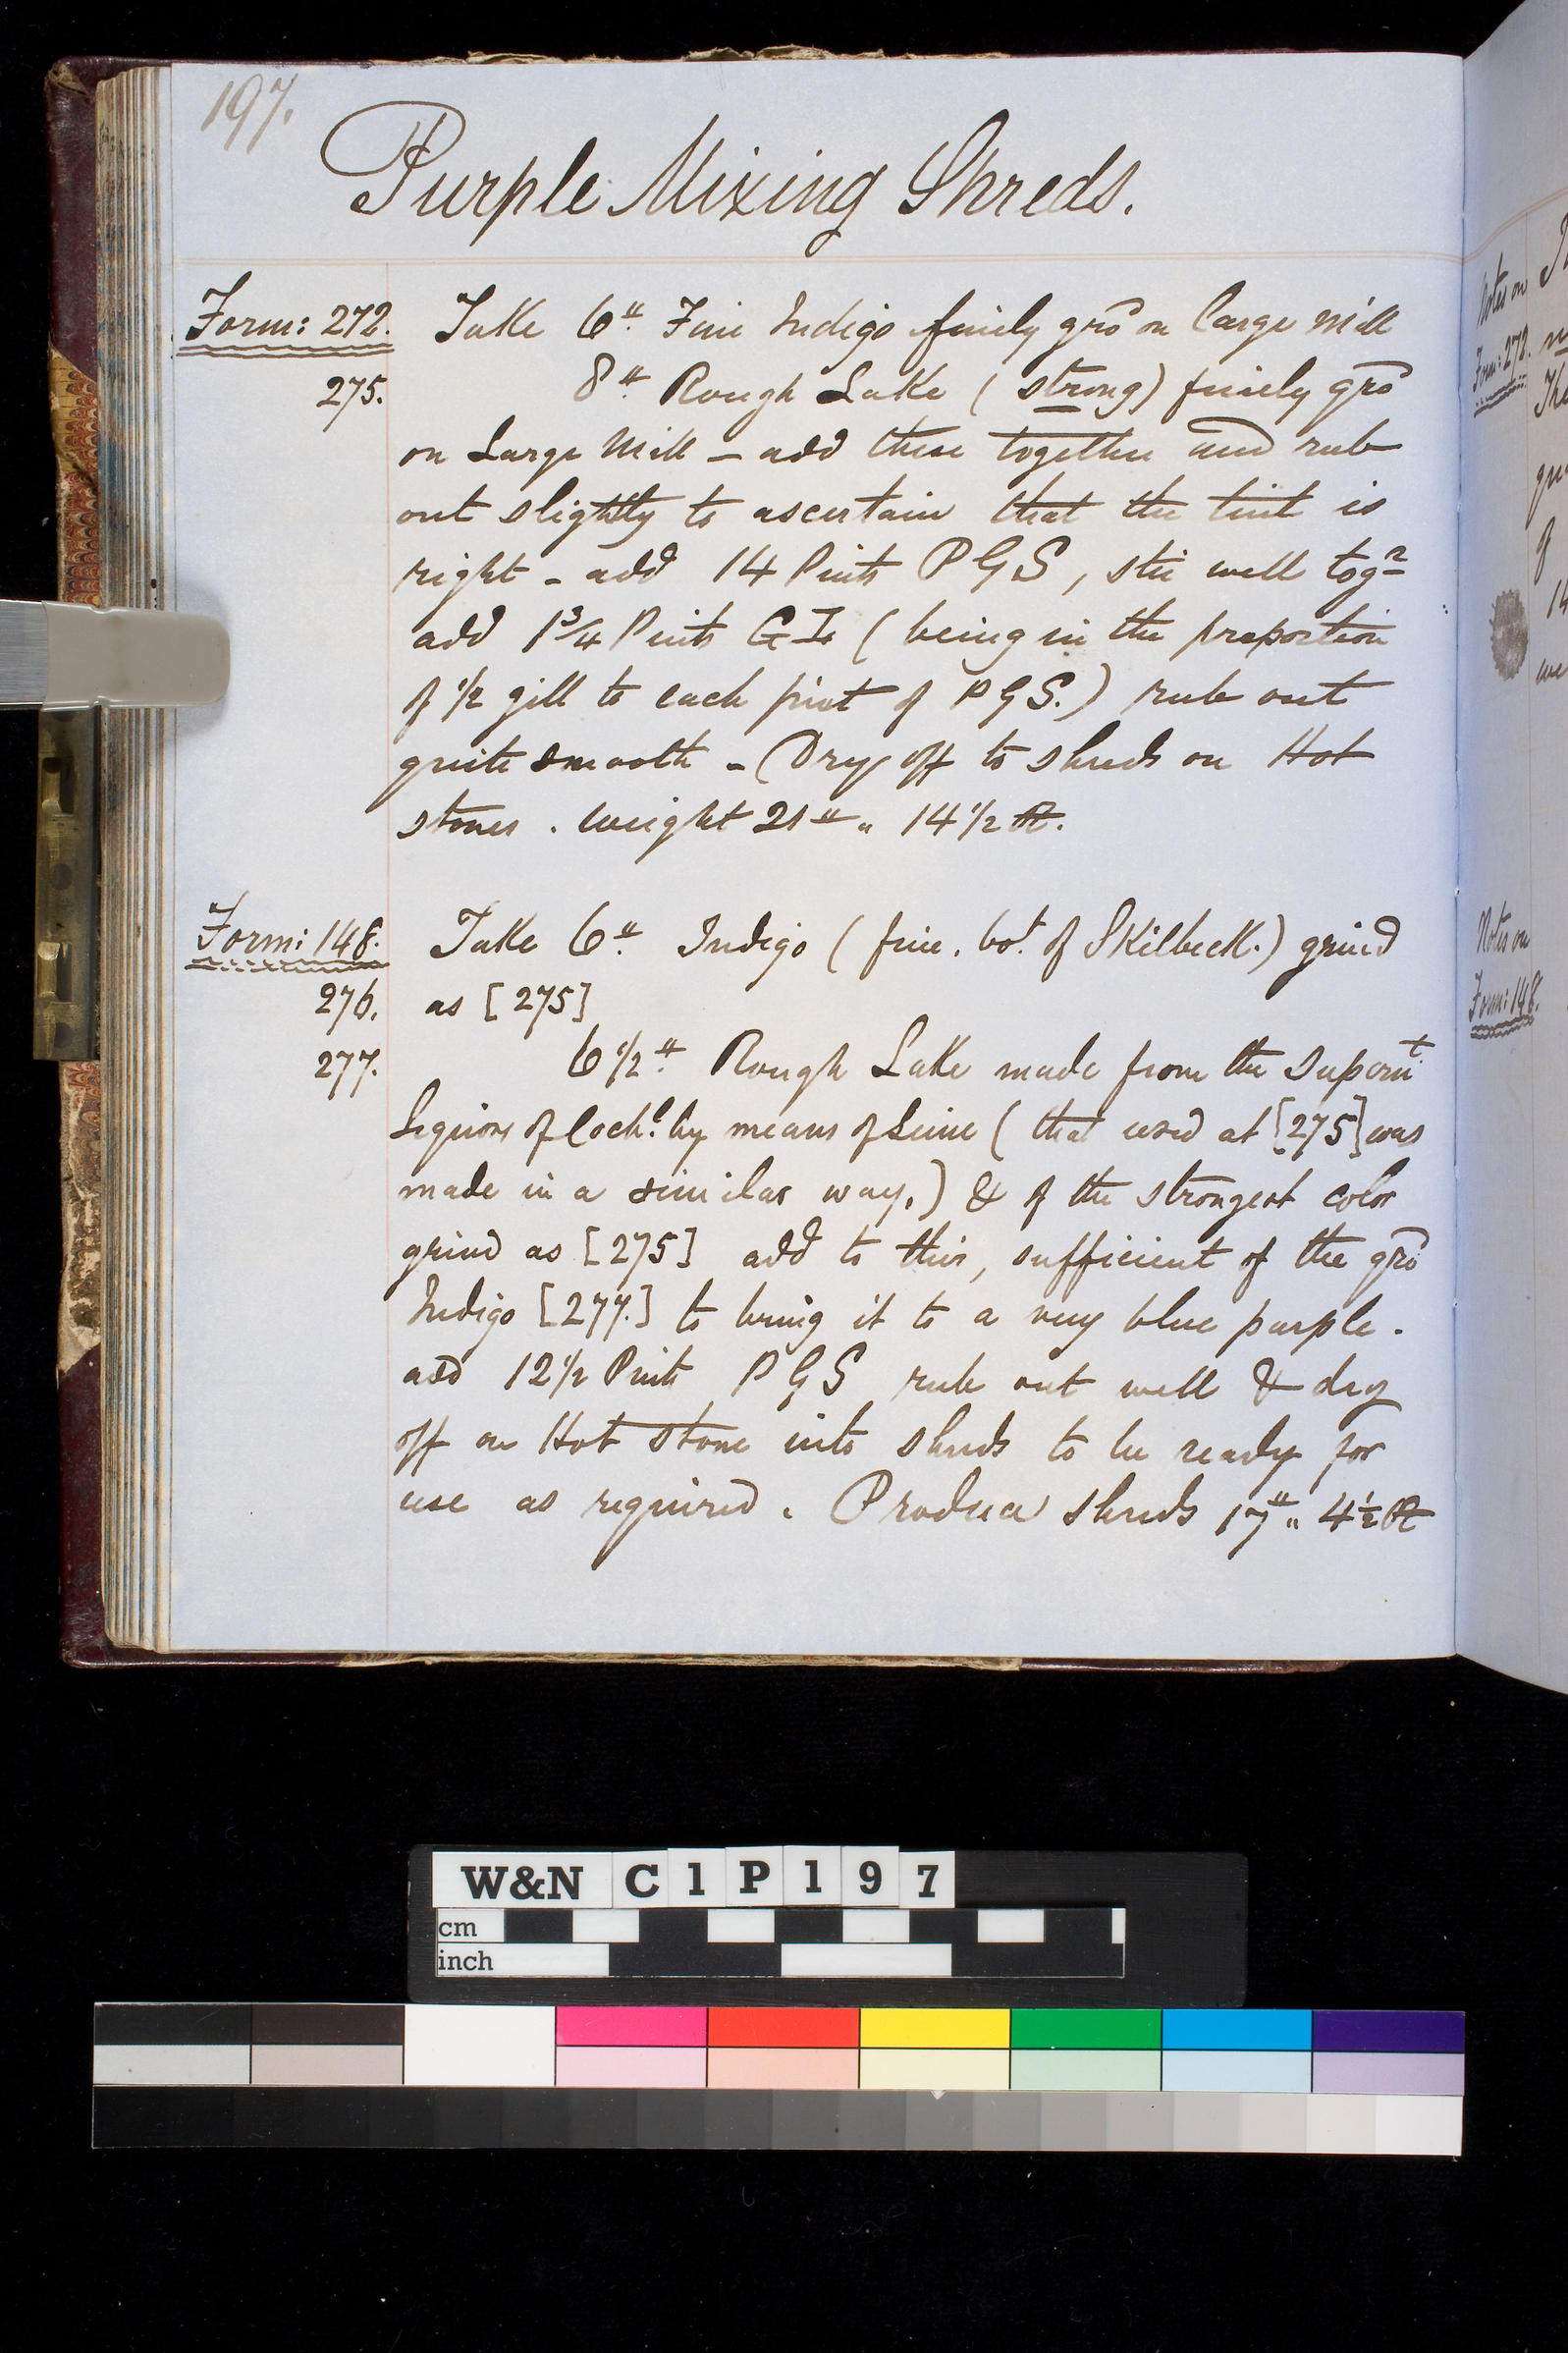 197.
Purple Mixing Shreds.
Form: 272. Take 6 lb. Fine Indigo finely gro on large mill
275. 8 lb. Rough Lake ( strong) finely gro
on Large Mill - add these together and rub
out slightly to ascertain that the tint is
right - add 14 Pints PGS, stir well togr
add 1 3/4 Pints G (being in the proportion
of 1/2 gill to each pint of PGS.) rub out
quite smooth - Dry off to shreds on Hot
stones . weight 21 lb " 14 1/2 oz.
Form: 148. Take 6 lb. Indigo ( fine. bot. of Skilbeck.) grind
276. as [275]
277. 6 1/2 lb. Rough Lake made from the supernt
Liquors of Cochl. by means of (that used at [275] was
made in a similar way.) & of the strongest color
grind as [275] add to this, sufficient of the gro
Indigo [277.] to bring it to a very blue purple.
add 12 1/2 Pints PGS rub out well & dry
off on Hot stone into shreds to be ready for
use as required. Produce shreds 17 lb " 4 1/2 oz
Notes on
Form: 272.
Notes on
Form: 148.
W&N C1P197
cm
inch